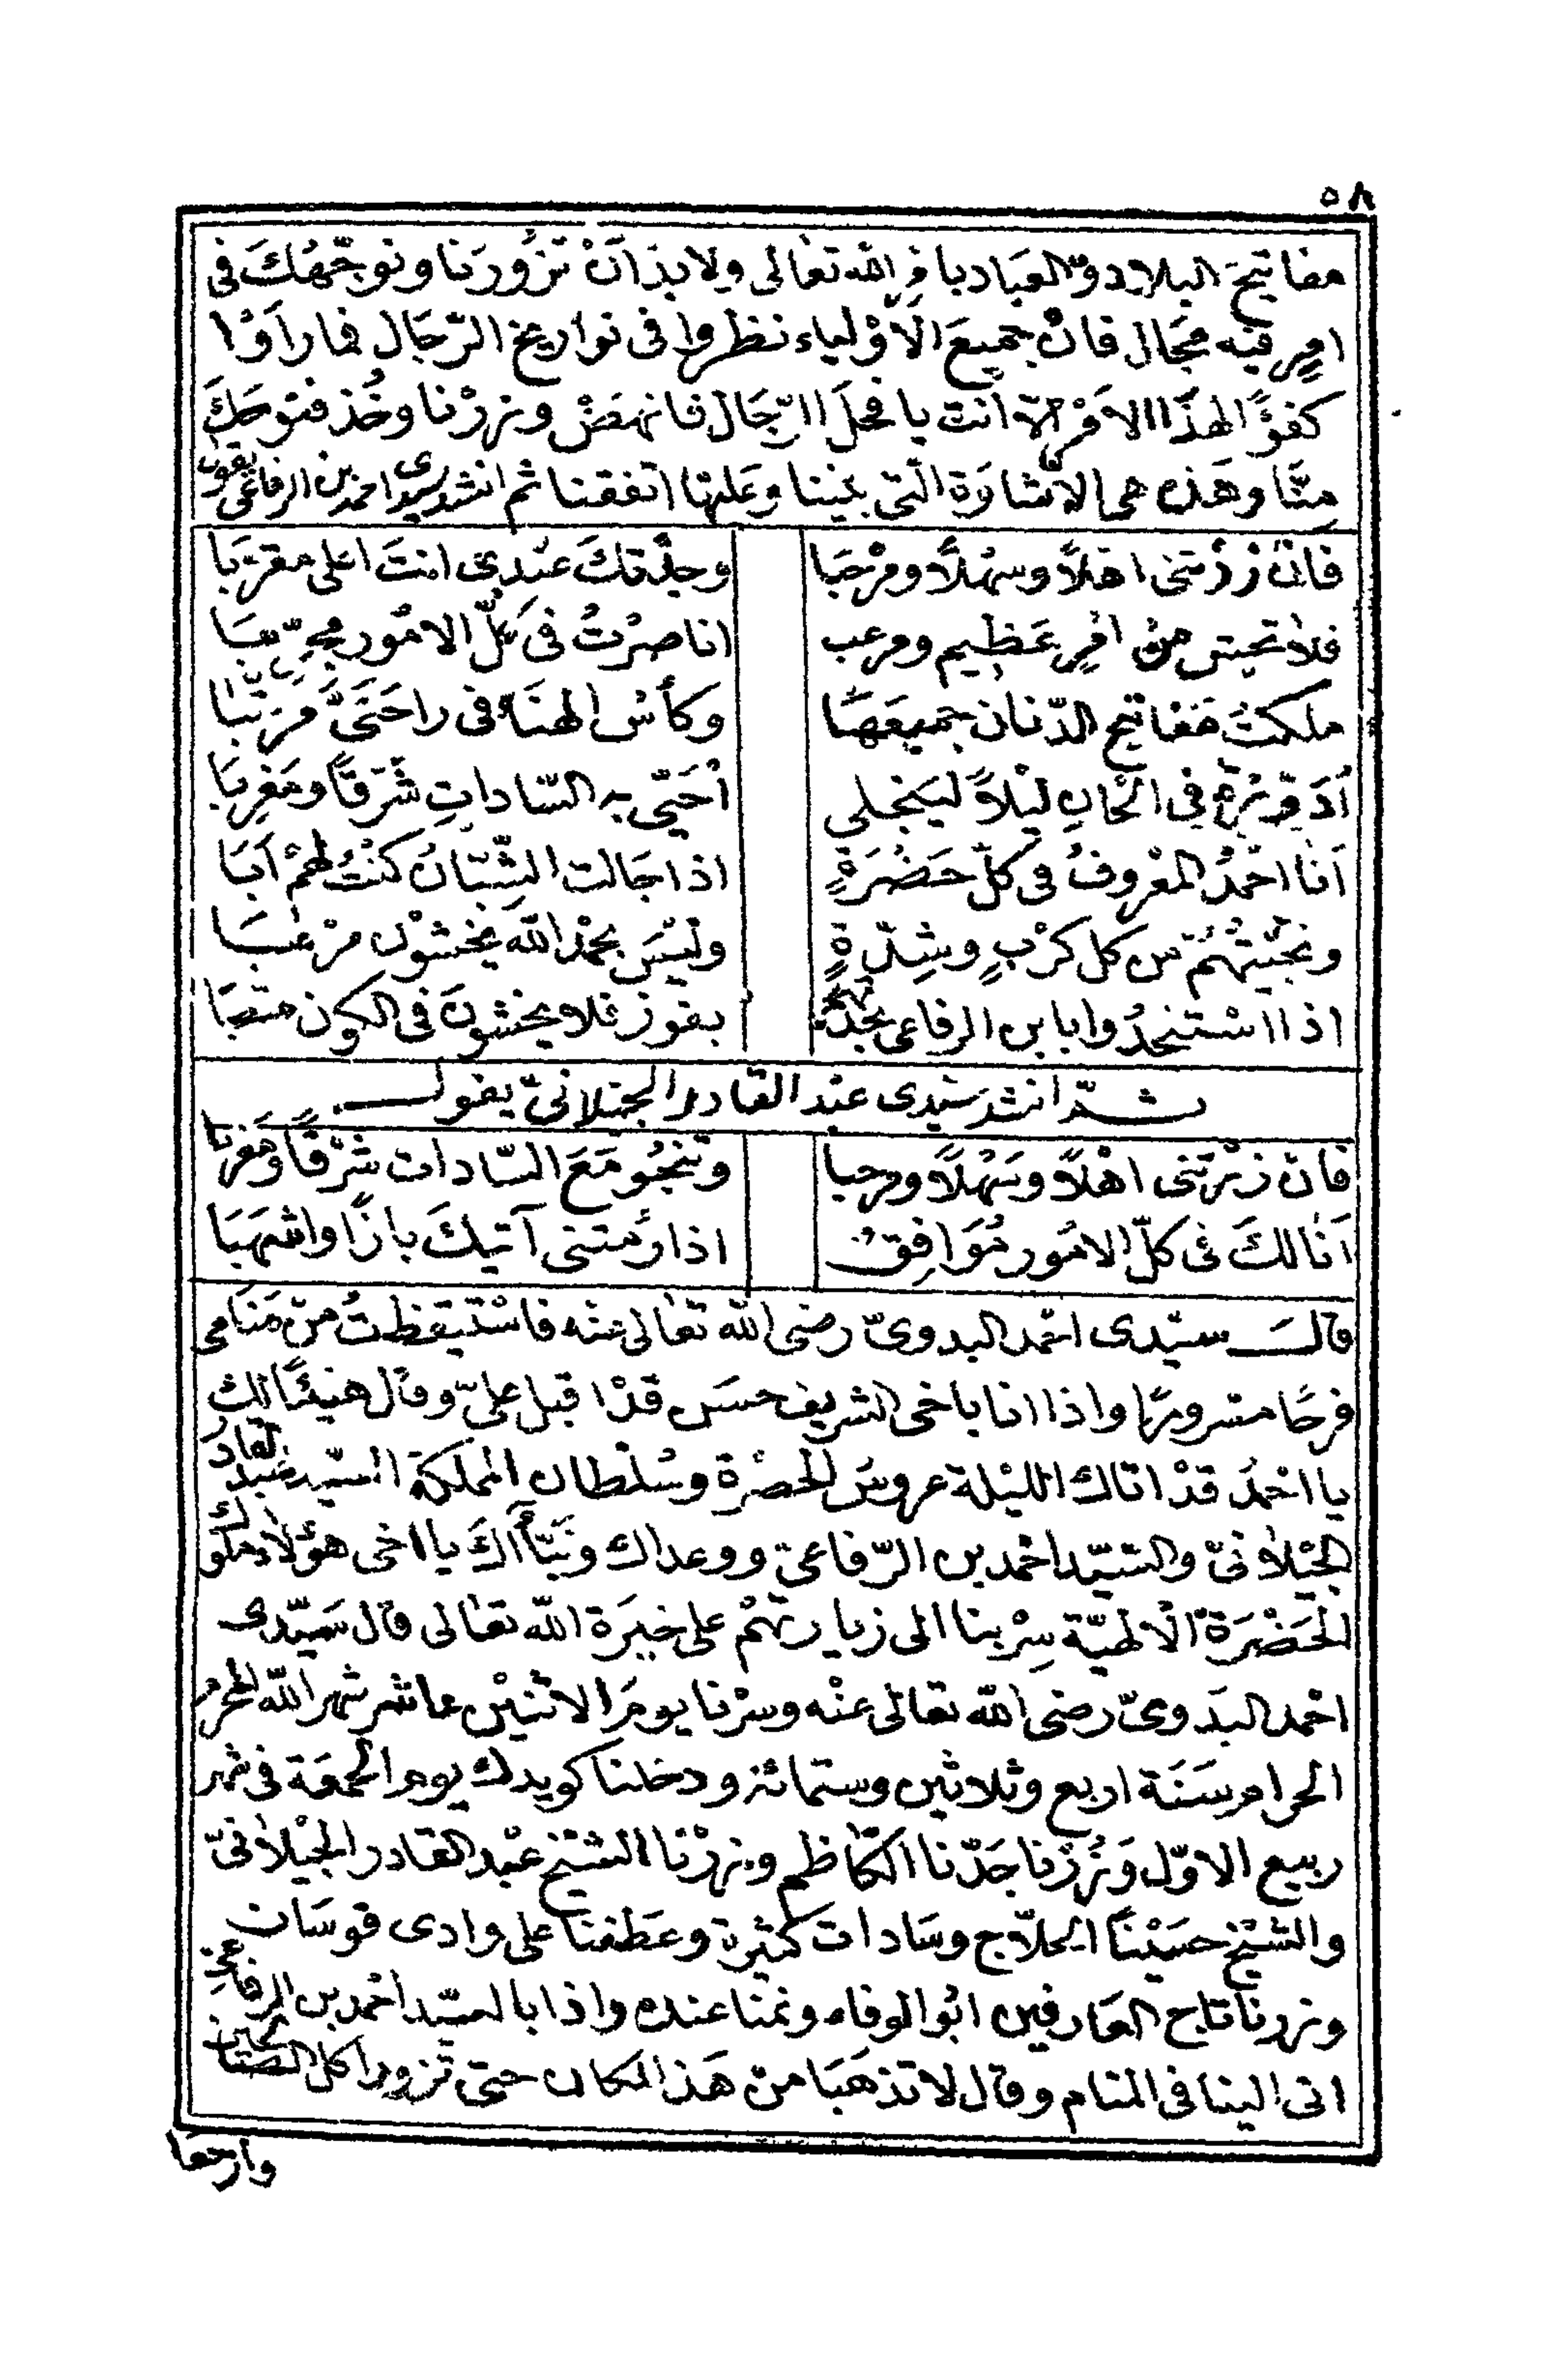 ٥٨
مفاتيحَ البلاد والعبَاد بامرِ الله تعالى ولا بدّ انْ تزُورنا ونوجّهُكَ فى
امرٍ فيه مجَال فانّ جميعَ الاَوْلياء نظروا فى تواريخ الرّجَال فما رَاَوْا
كفوًا لهذَا الامْر الاّ انت يا فحلَ الرّجَال فانهضْ وزرْنا وخُذ فتوحَكَ
مِنَّا وهَذه هى الاشارَة الّتى بيننا وعَليْها اتفقنا ثم انشد سيدى احمد بن الرفاعى يقول
فانْ زرْتنى اهْلاً وسهْلاً ومرْحَبَا
وحقّك عنْدى انتَ اعلى مقرّبَا
فلا تحتس منْ امْرٍ عَظِيم ومرعب
انا صرْتُ فى كلّ الامُور مجرّبَا
ملكتُ مَفاتيح الدّنان جميعَهَا
وكأسُ الهنَا فى راحَتَىَّ مرَتّبَا
اُدَوّرُهَا فى الحَانِ ليْلاً ليَنجلى
اُحَيّى به السّاداتِ شَرقًا ومَغرِبَا
اَنا احْمدُ المعْروفُ فى كلّ حَضْرَةٍ
اذا جَالت الشّبّانُ كنْتُ لهمْ اَبَا
ونجّيْتهُمْ من كل كرْبٍ وشِدّةٍ
وليْسَ بحمْد الله يخشوْن مرْعبَا
اذا اسْتنجدُوا بابن الرفاعى بجدّهم
بفوز فلا يخشونَ فى الكون متعبَا
ثمّ انشد سَيّدى عبْد القادر الجيْلانىّ يقول
فان زرْتنى اهْلاً وسَهْلاً ومرحبا
وتنجُو مَعَ السّادات شرْقًا ومَغربا
اَنا لكَ فى كلّ الامُور مُوَافِقٌ
اذا رُمتنى آتيكَ بازًا واشهَبَا
قالَ سيّدى احْمد البدوىّ رضى الله تعالى عنْه فاسْتيقظتُ منْ مَنَامى
فرحًا مسْرورًا واذا انا باخى الشريف حسَن قدْ اقبل علىّ وقال هنيئًا لك
يا احْمدُ قدْ اتاك الليْلة عروسُ الحضْرة وسُلْطان المملكة السّيد عبد القادر
الجيْلانىّ والسّيّد احْمد بن الرّفاعى ووعداك ونبّأَاكَ يا اخى هؤلاء ملوك
الحَضْرَة الالهيّة سِرْ بنا الى زيارتهمْ على خيَرة الله تعالى قال سَيّدى
احْمد البدَوىّ رضى الله تعالى عنْه وسرْنا يومَ الاثنيْن عاشر شهر الله المحرم
الحرام سَنَة اربع وثلاثين وستمائة ودخلنا كويدك يوم الجمعَة فى شهر
ربيع الاوّل وَزُرْنا جَدّنا الكَاظم وزرْنا الشيْخ عبْد القادر الجيْلانىّ
والشيْخ حسَيْنًا الحلاّج وسَادات كثيرة وعَطفنا على وادى قوسَان
وزرنا تاج العَارفين ابُو الوفاء ونمنا عنده واذا بالسيّد احْمد بن الرفاعى
اتى الينا فى المنام وقال لا تذهَبَا منْ هَذا المكان حتى تزورا كل الصّالحين
وارجعَا